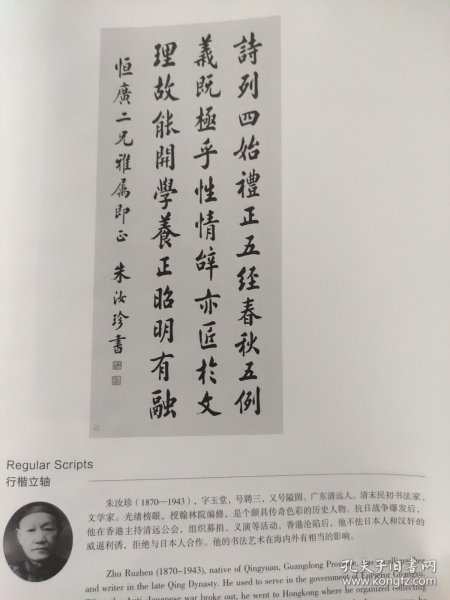 詩列四始禮正五經春秋五例
義既極乎性情辭亦匠於文
理故能開學養正昭明有融
恒廣二兄雅属即正 朱汝珍書
Regular Scripts
行楷立轴
朱汝珍（1870—1943），字玉堂，号聘三，又号隘园。广东清远人。清末民初书法家、
文学家。光绪榜眼，授翰林院编修，是个颇具传奇色的历史人物。抗日战争爆发后，
他在香港主持清远公会，组织募捐、义演等活动。香港沦陷后，他不怯日本人和汉奸的
威逼利诱，拒绝与日本人合作。他的书法艺术在海内外有相当的影响。
Zhu Ruzhen (1870–1943), native of Qingyuan, Guangdong
and writer in the late Qing Dynasty. He used to serve in the government of Emperor Guangxu.
war broke out, he went to Hongkong where he organized collecting
孔夫子旧书网